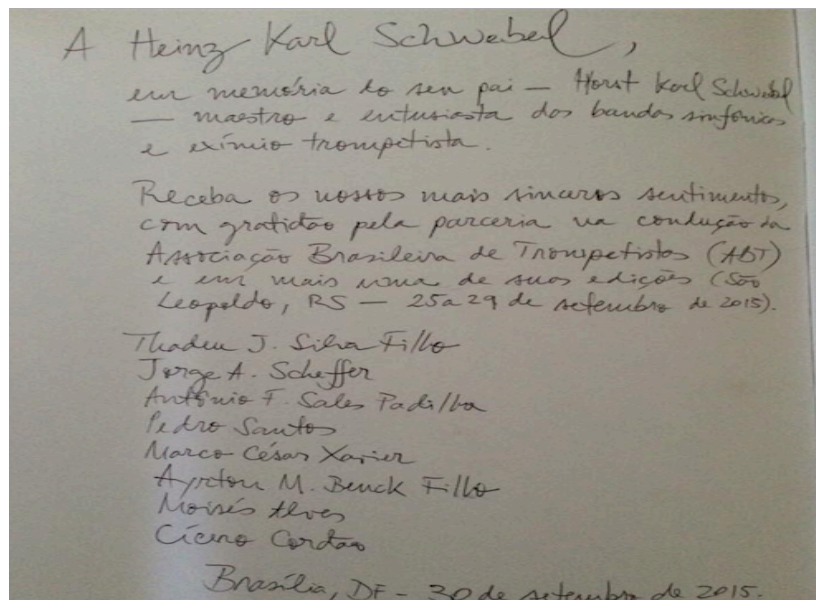 A Heinz Karl Schwebel,
em memória do seu pai — Horst Karl Schwebel
— maestro e entusiasta das bandas sinfônicas
e exímio trompetista.
Receba os nossos mais sinceros sentimentos,
com gratidão pela parceria na condução da
Associação Brasileira de Trompetistas (ABT)
e em mais uma de suas edições (São
Leopoldo, RS — 25 a 29 de setembro de 2015).
Thadeu J. Silva Filho
Jorge A. Scheffer
Antônio F. Sales Padilha
Pedro Santos
Marco César Xavier
Ayrton M. Benck Filho
Moisés Alves
Cícero Cordão
Brasília, DF - 30 de setembro de 2015.